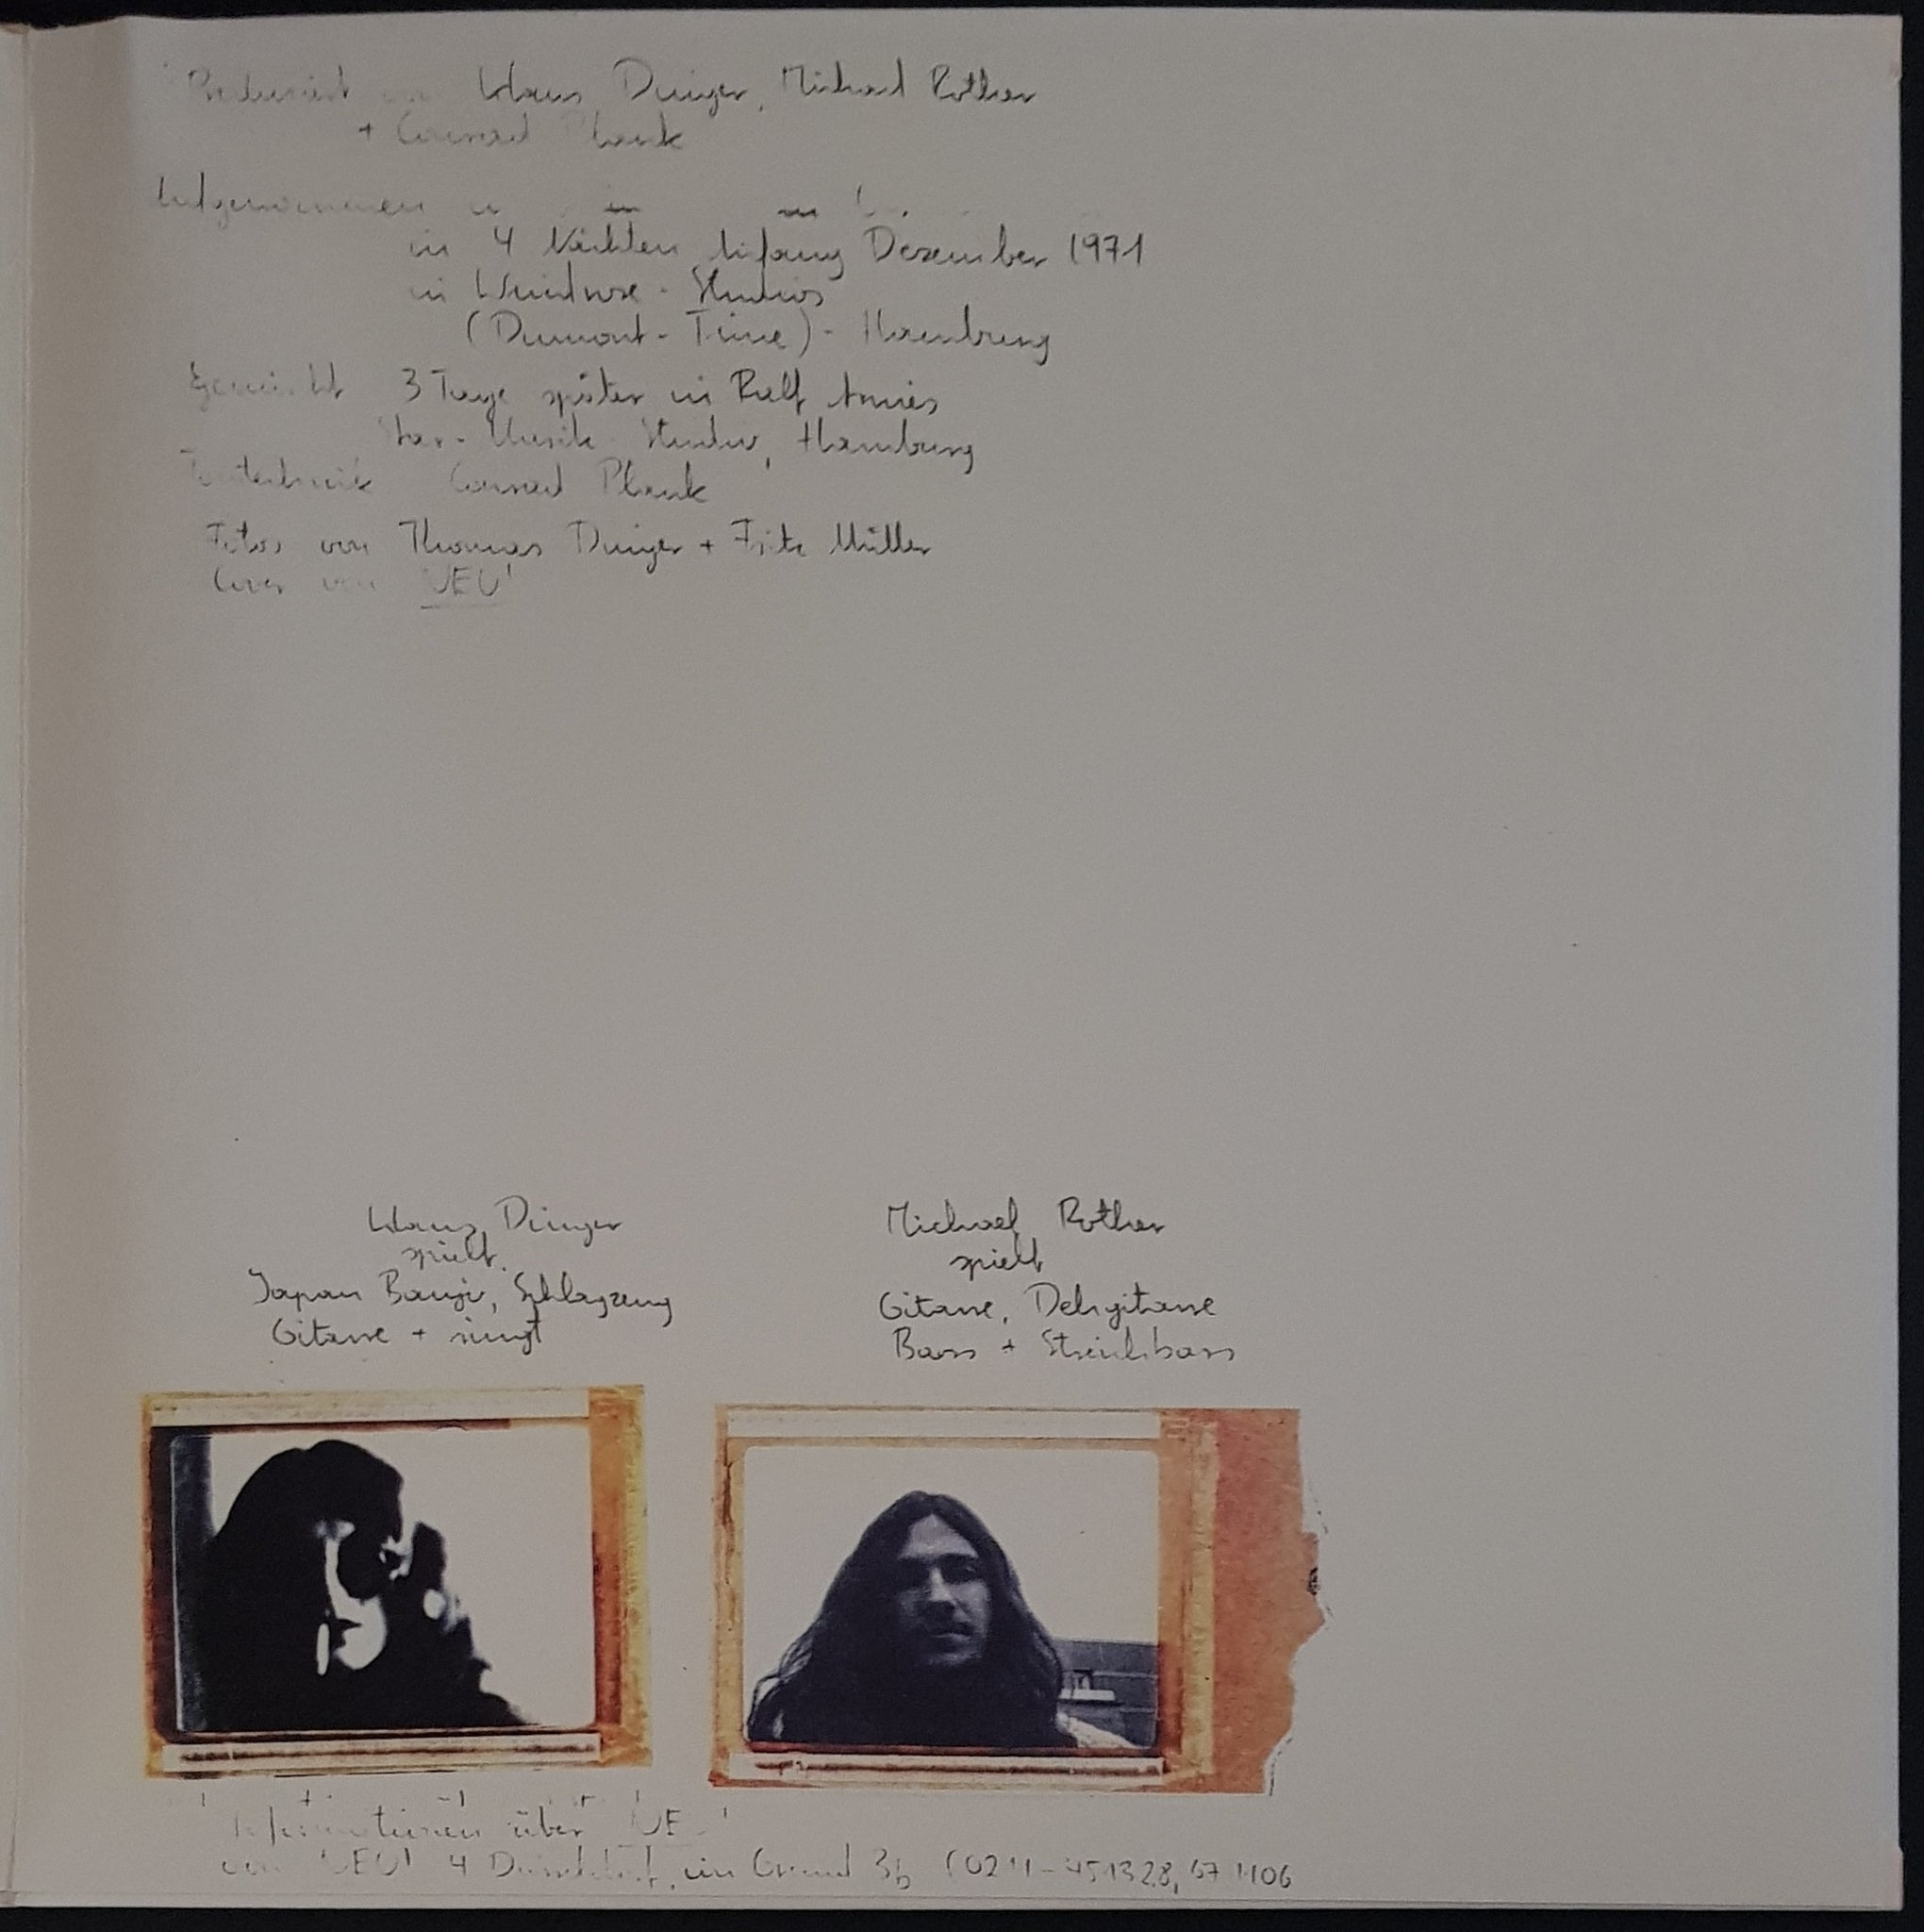 Produziert von Klaus Dinger, Michael Rother
+ Conrad Plank
Aufgenommen
in 4 Nächten Anfang Dezember 1971
in Windrose-Studios
(Dumont-Time)-Hamburg
Gemischt 3 Tage später in Ralf Arnies
Star-Musik Studio, Hamburg
Tontechnik Conrad Plank
Fotos von Thomas Dinger + Fritz Müller
Cover von NEU!
Klaus Dinger
spielt
Japan Banjo, Schlagzeug
Gitarre + singt
Michael Rother
spielt
Gitarre, Dehgitarre
Bass + Streichbass
Informationen über NEU!
von NEU! 4 Düsseldorf, im Grund 3b (0211-451328, 671106